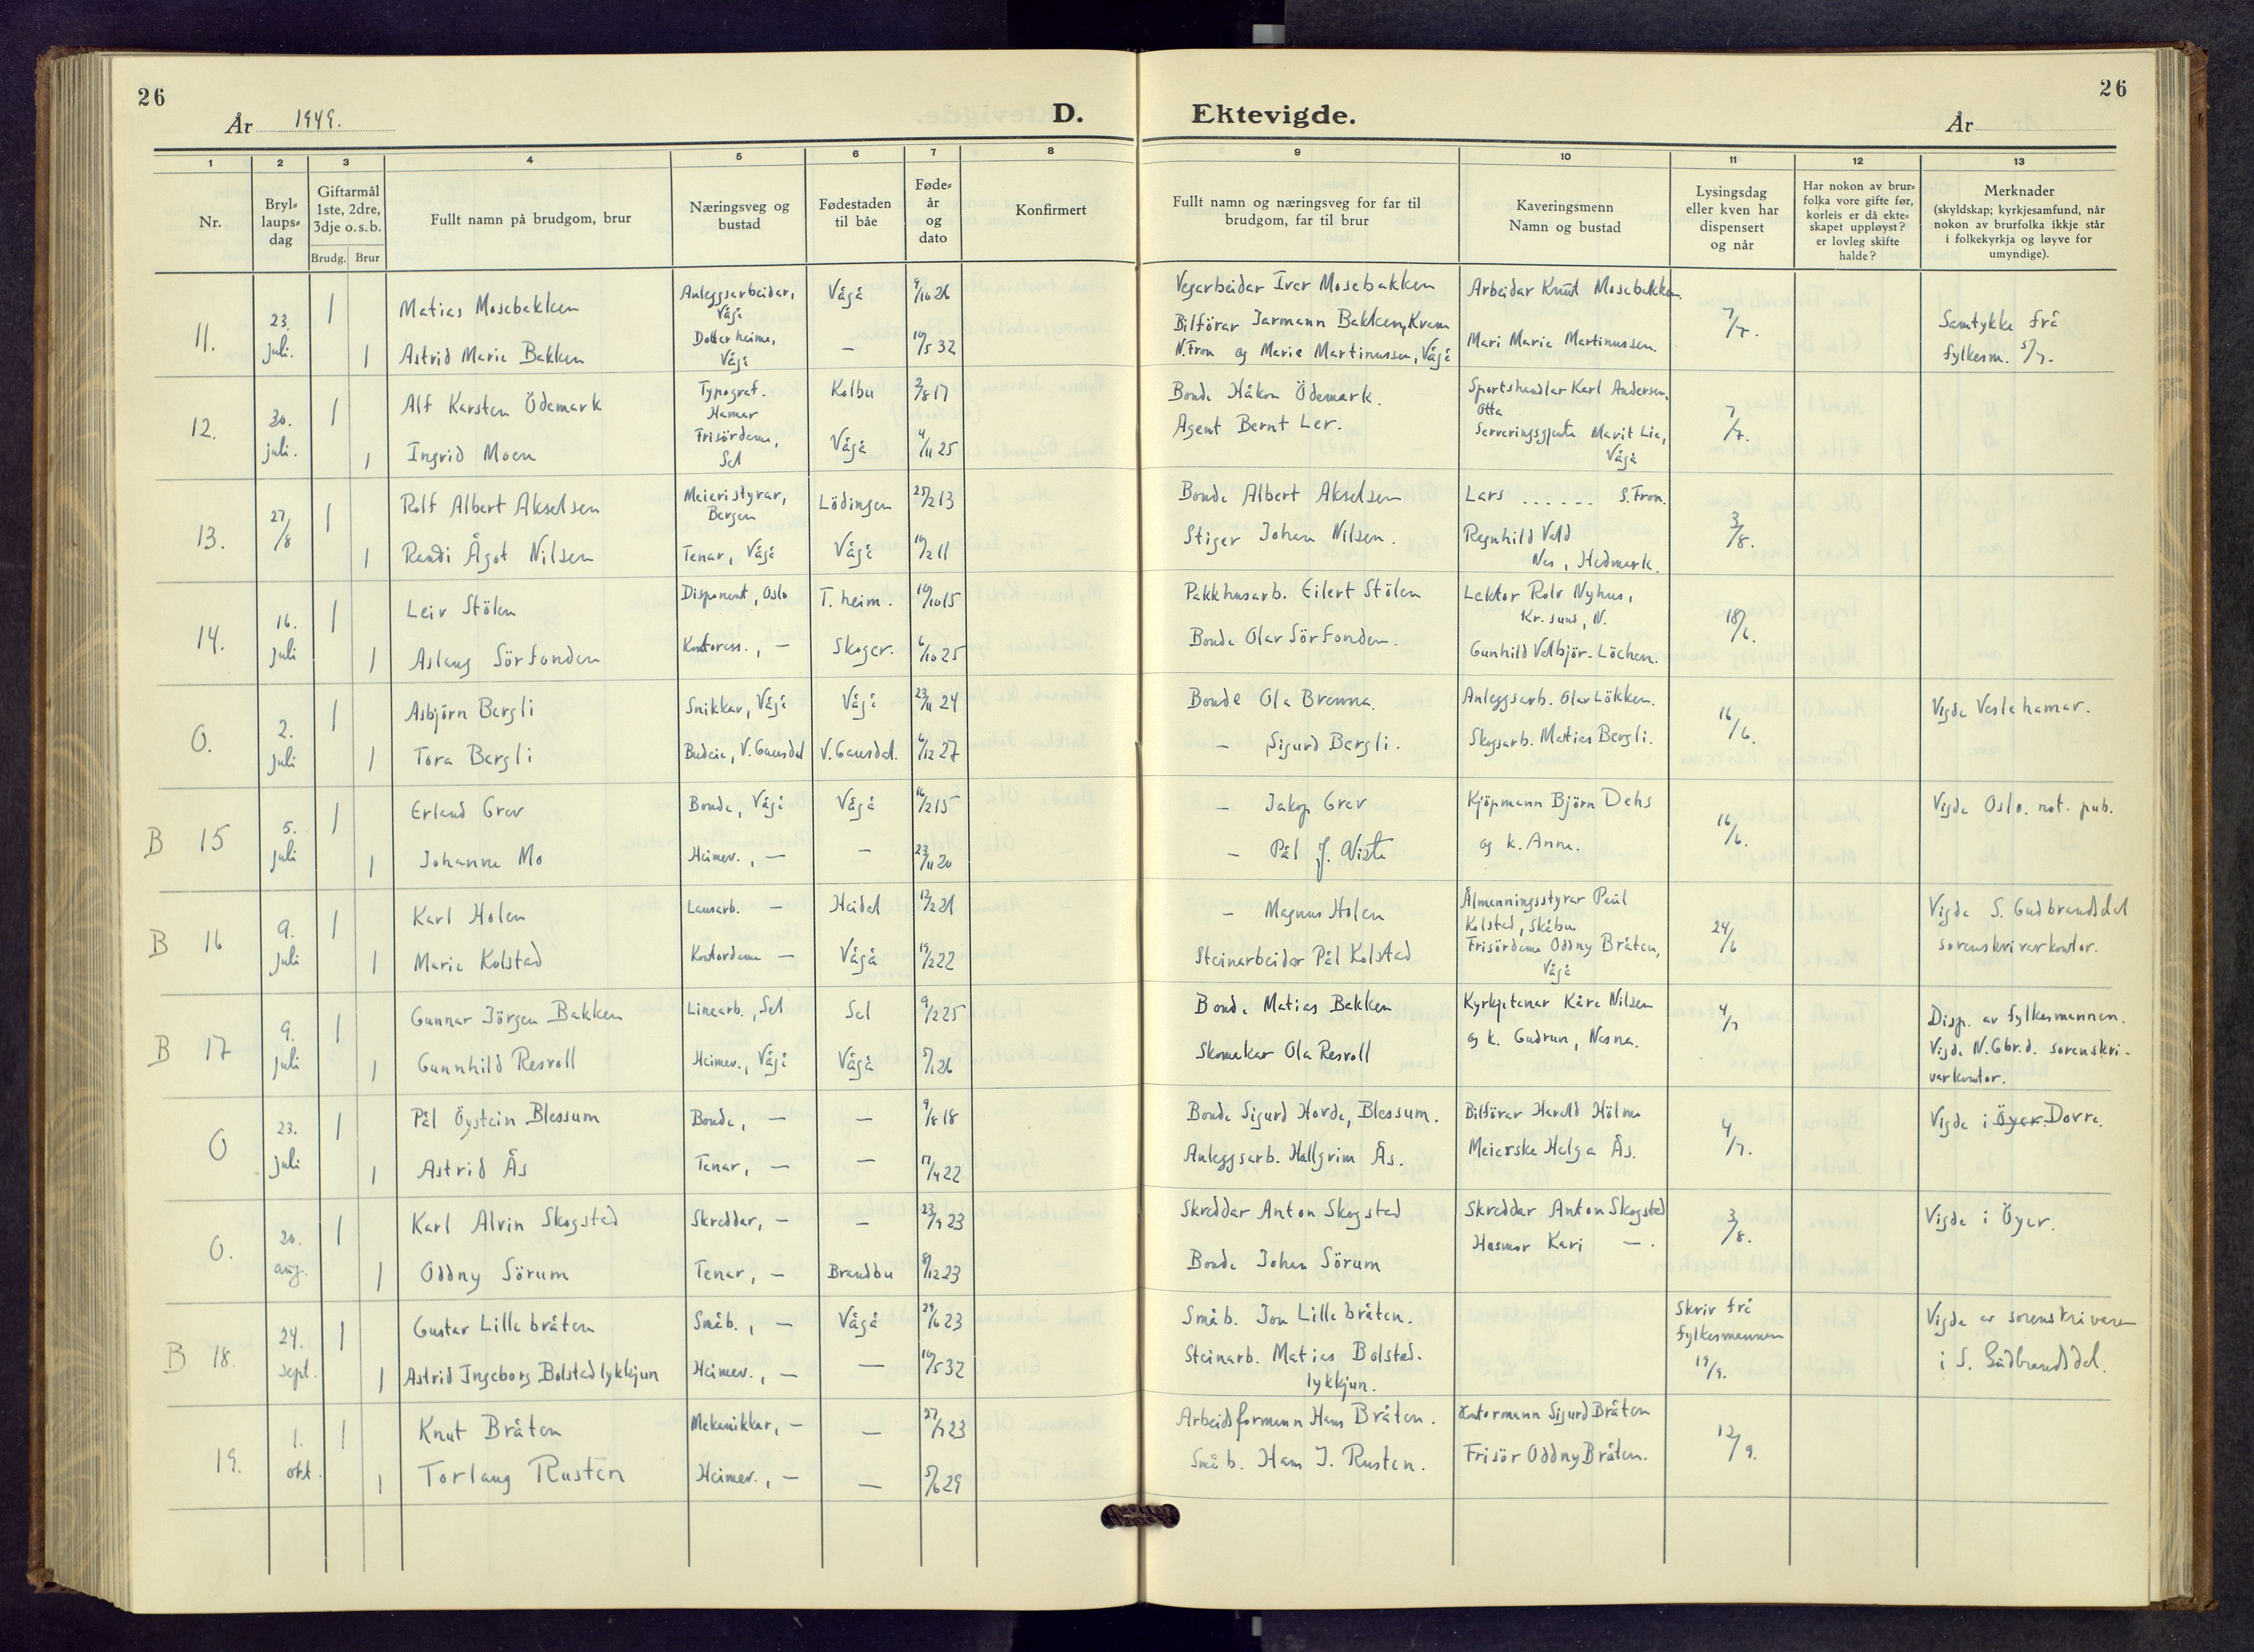 26
År 1949. D.
1 2 3 4 5 6 7 8
Nr. Bryl-laups-dag Giftarmål 1ste, 2dre, 3dje o.s.b. Brudg. Brur Fullt namn på brudgom, brur Næringsveg og bustad Fødestaden til båe Føde-år og dato Konfirmert
11. 23. juli. 1 Matias Mosebakken Anleggsarbeidar, Vågå Vågå 9/10 26
1 Astrid Marie Bakken Dotter heime, Vågå — 10/5 32
12. 30. juli. 1 Alf Karsten Ödemark Typograf. Hamar Kolbu 3/8 17
1 Ingrid Moen Frisördame, Sel Vågå 4/11 25
13. 27/8 1 Rolf Albert Akselsen Meieristyrar, Bergen Lödingen 25/2 13
1 Randi Ågot Nilsen Tenar, Vågå Vågå 16/2 11
14. 16. juli 1 Leiv Stölen Disponent, Oslo T.heim. 10/10 15
1 Aslaug Sörfonden Kontoress., — Skoger. 6/10 25
0. 2. juli 1 Asbjörn Bergli Snikkar, Vågå Vågå 23/11 24
1 Tora Bergli Budeie, V. Gausdal V. Gausdal. 6/12 27
B 15 5. juli 1 Erland Grev Bonde, Vågå Vågå 16/2 15
1 Johanne Mo Heimev., — — 23/11 20
B 16 9. juli 1 Karl Holen Lausarb. — Heidal 12/2 21
1 Marie Kolstad Kontordame — Vågå 19/2 22
B 17 9. juli 1 Gunnar Jörgen Bakken Linearb., Sel Sel 9/2 25
1 Gunnhild Resvoll Heimev., Vågå Vågå 5/1 26
0 23. juli 1 Pål Öystein Blessum Bonde, — — 9/8 18
1 Astrid Ås Tenar, — — 17/4 22
0. 20. aug. 1 Karl Alvin Skogstad Skreddar, — — 23/9 23
1 Oddny Sörum Tenar, — Brandbu 8/12 23
B 18. 24. sept. 1 Gustav Lillebråten Småb., — Vågå 29/6 23
1 Astrid Ingeborg Bolstadlykkjun Heimev., — — 10/5 32
19. 1. okt. 1 Knut Bråten Mekanikkar, — — 27/7 23
1 Torlaug Rusten Heimev., — — 5/6 29
26
Ektevigde. År
9 10 11 12 13
Fullt namn og næringsveg for far til brudgom, far til brur Kaveringsmenn Namn og bustad Lysingsdag eller kven har dispensert og når Har nokon av brur-folka vore gifte før, korleis er då ekte-skapet uppløyst? er lovleg skifte halde? Merknader (skyldskap; kyrkjesamfund, når nokon av brurfolka ikkje står i folkekyrkja og løyve for umyndige).
Vegarbeidar Iver Mosebakken Arbeidar Knut Mosebakken. 7/7. Samtykke frå
Bilförar Jarmann Bakken, Kvam
N. Fron og Marie Martinussen, Vågå Mari Marie Martinussen. fylkesm. 5/7.
Bonde Håkon Ödemark. Sportshandlar Karl Andersen, Otta 7/7.
Agent Bernt Ler. Serveringsgjente Marit Lie, Vågå
Bonde Albert Akselsen Lars . . . . . . S. Fron. 3/8.
Stiger Johan Nilsen. Ragnhild Vold
Nes, Hedmark.
Pakkhusarb. Eilert Stölen Lektor Rolv Nyhus, Kr.sund, N. 18/6.
Bonde Olav Sörfonden. Gunhild Valbjör-Löchen.
Bonde Ola Brenna. Anleggsarb. Olav Lökken. 16/6. Vigde Veslehamar.
— Sigurd Bergli. Skogsarb. Matias Bergli.
— Jakop Grev Kjöpmann Björn Dehs 16/6. Vigde Oslo. not. pub.
— Pål J. Viste og k. Anne.
— Magnus Holen Ålmenningsstyrar Paul Kolstad, Skåbu 24/6 Vigde S. Gudbrandsdal
Steinarbeidar Pål Kolstad Frisördame Oddny Bråten, Vågå sorenskrivarkontor.
Bonde Matias Bakken Kyrkjetenar Kåre Nilsen 4/7 Disp. av fylkesmannen.
Skomakar Ola Resvoll og k. Gudrun, Nesna. Vigde N. Gbr.d. sorenskri-
varkontor.
Bonde Sigurd Horde, Blessum. Bilförar Harald Holme 4/7. Vigde i Öyer. Dovre.
Anleggsarb. Hallgrim Ås. Meierske Helga Ås.
Skreddar Anton Skogstad Skreddar Anton Skogstad 3/8. Vigde i Öyer.
Bonde Johan Sörum Husmor Kari — .
Småb. Jon Lillebråten. Skriv frå fylkesmannen 19/9. Vigde av sorenskrivaren
Steinarb. Matias Bolstad-lykkjun. i S. Gudbrandsdal.
Arbeidsformann Hans Bråten. Kontormann Sigurd Bråten 12/9.
Småb. Hans J. Rusten. Frisör Oddny Bråten.